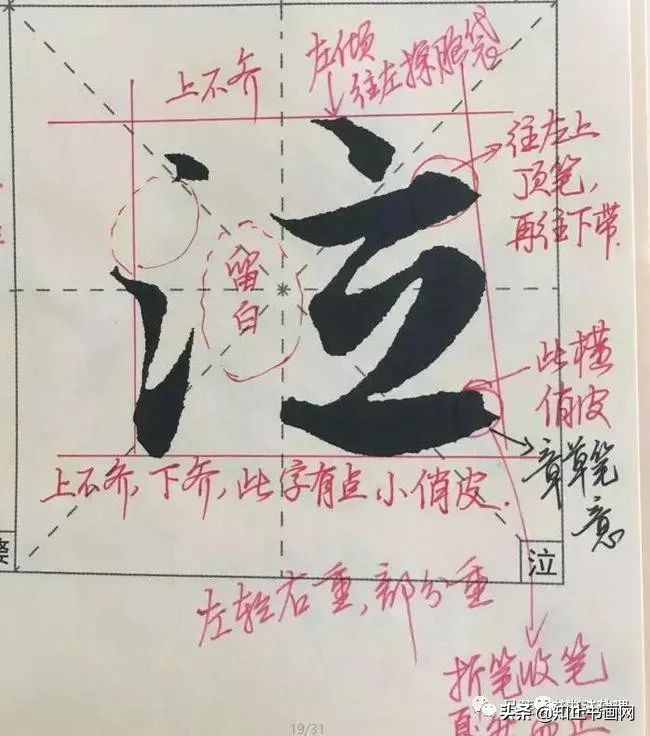 上不齐
左倾
往左探胞袋
往左上
顶笔，
再往下带.
泣
留
白
此横
俏皮
章草笔
意
上不齐，下齐，此字有点小俏皮.
泣
左轻右重，部分重
折笔收笔
头条 @知止书画网
19/31